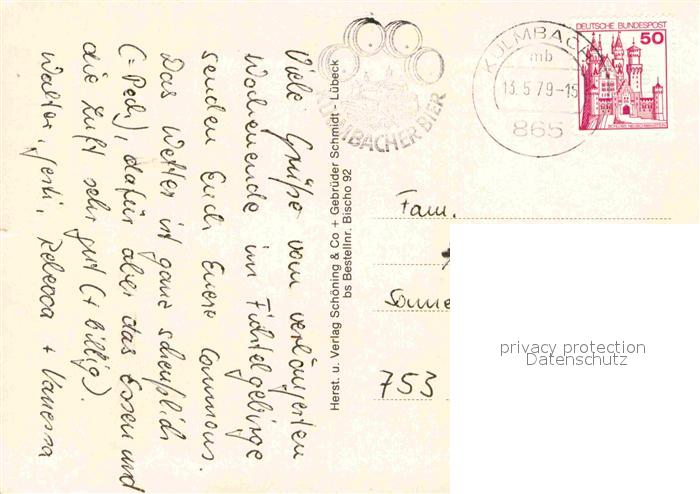 Viele Grüße vom verlängerten
Wochenende im Fichtelgebirge
senden Euch Euere
Das Wetter ist ganz scheußlich
(= Pech), dafür aber das Essen und
die Luft sehr gut (+ billig).
Walter, Gerti, Rebecca + Vanessa
KULMBACHER BIER
Herst. u. Verlag Schöning & Co + Gebrüder Schmidt - Lübeck
bs Bestellnr. Bischo 92
KULMBACH
mb
13.5.79-15
865
DEUTSCHE BUNDESPOST
50
SCHLOSS NEUSCHWANSTEIN
Fam.
753
privacy protection
Datenschutz